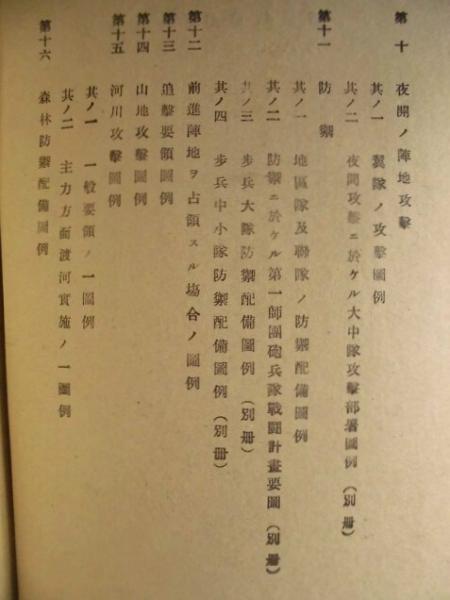 第十 夜間ノ陣地攻擊
其ノ一 翼隊ノ攻擊圖例
其ノ二 夜間攻擊ニ於ケル大中隊攻擊部署圖例(別册)
第十一 防禦
其ノ一 地區隊及聯隊ノ防禦配備圖例
其ノ二 防禦ニ於ケル第一師團砲兵隊戰鬪計畫要圖(別册)
其ノ三 步兵大隊防禦配備圖例(別册)
其ノ四 步兵中小隊防禦配備圖例(別册)
第十二 前進陣地ヲ占領スル場合ノ圖例
第十三 追擊要領圖例
第十四 山地攻擊圖例
第十五 河川攻擊圖例
其ノ一 一般要領ノ一圖例
其ノ二 主力方面渡河實施ノ一圖例
第十六 森林防禦配備圖例